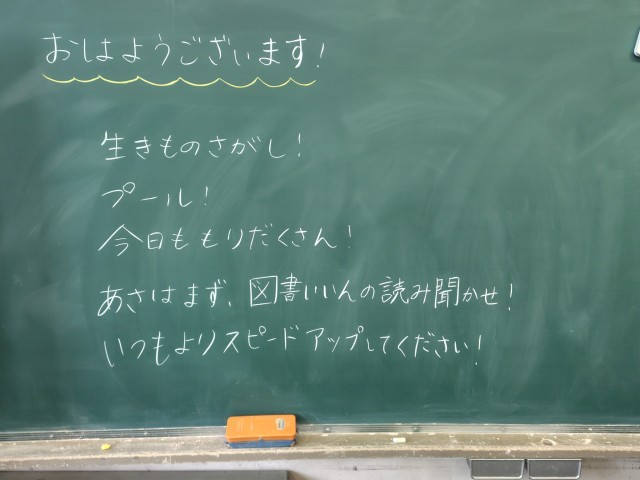 おはようございます!
生きものさがし!
プール!
今日ももりだくさん!
あさはまず、図書いいんの読み聞かせ!
いつもよりスピードアップしてください!